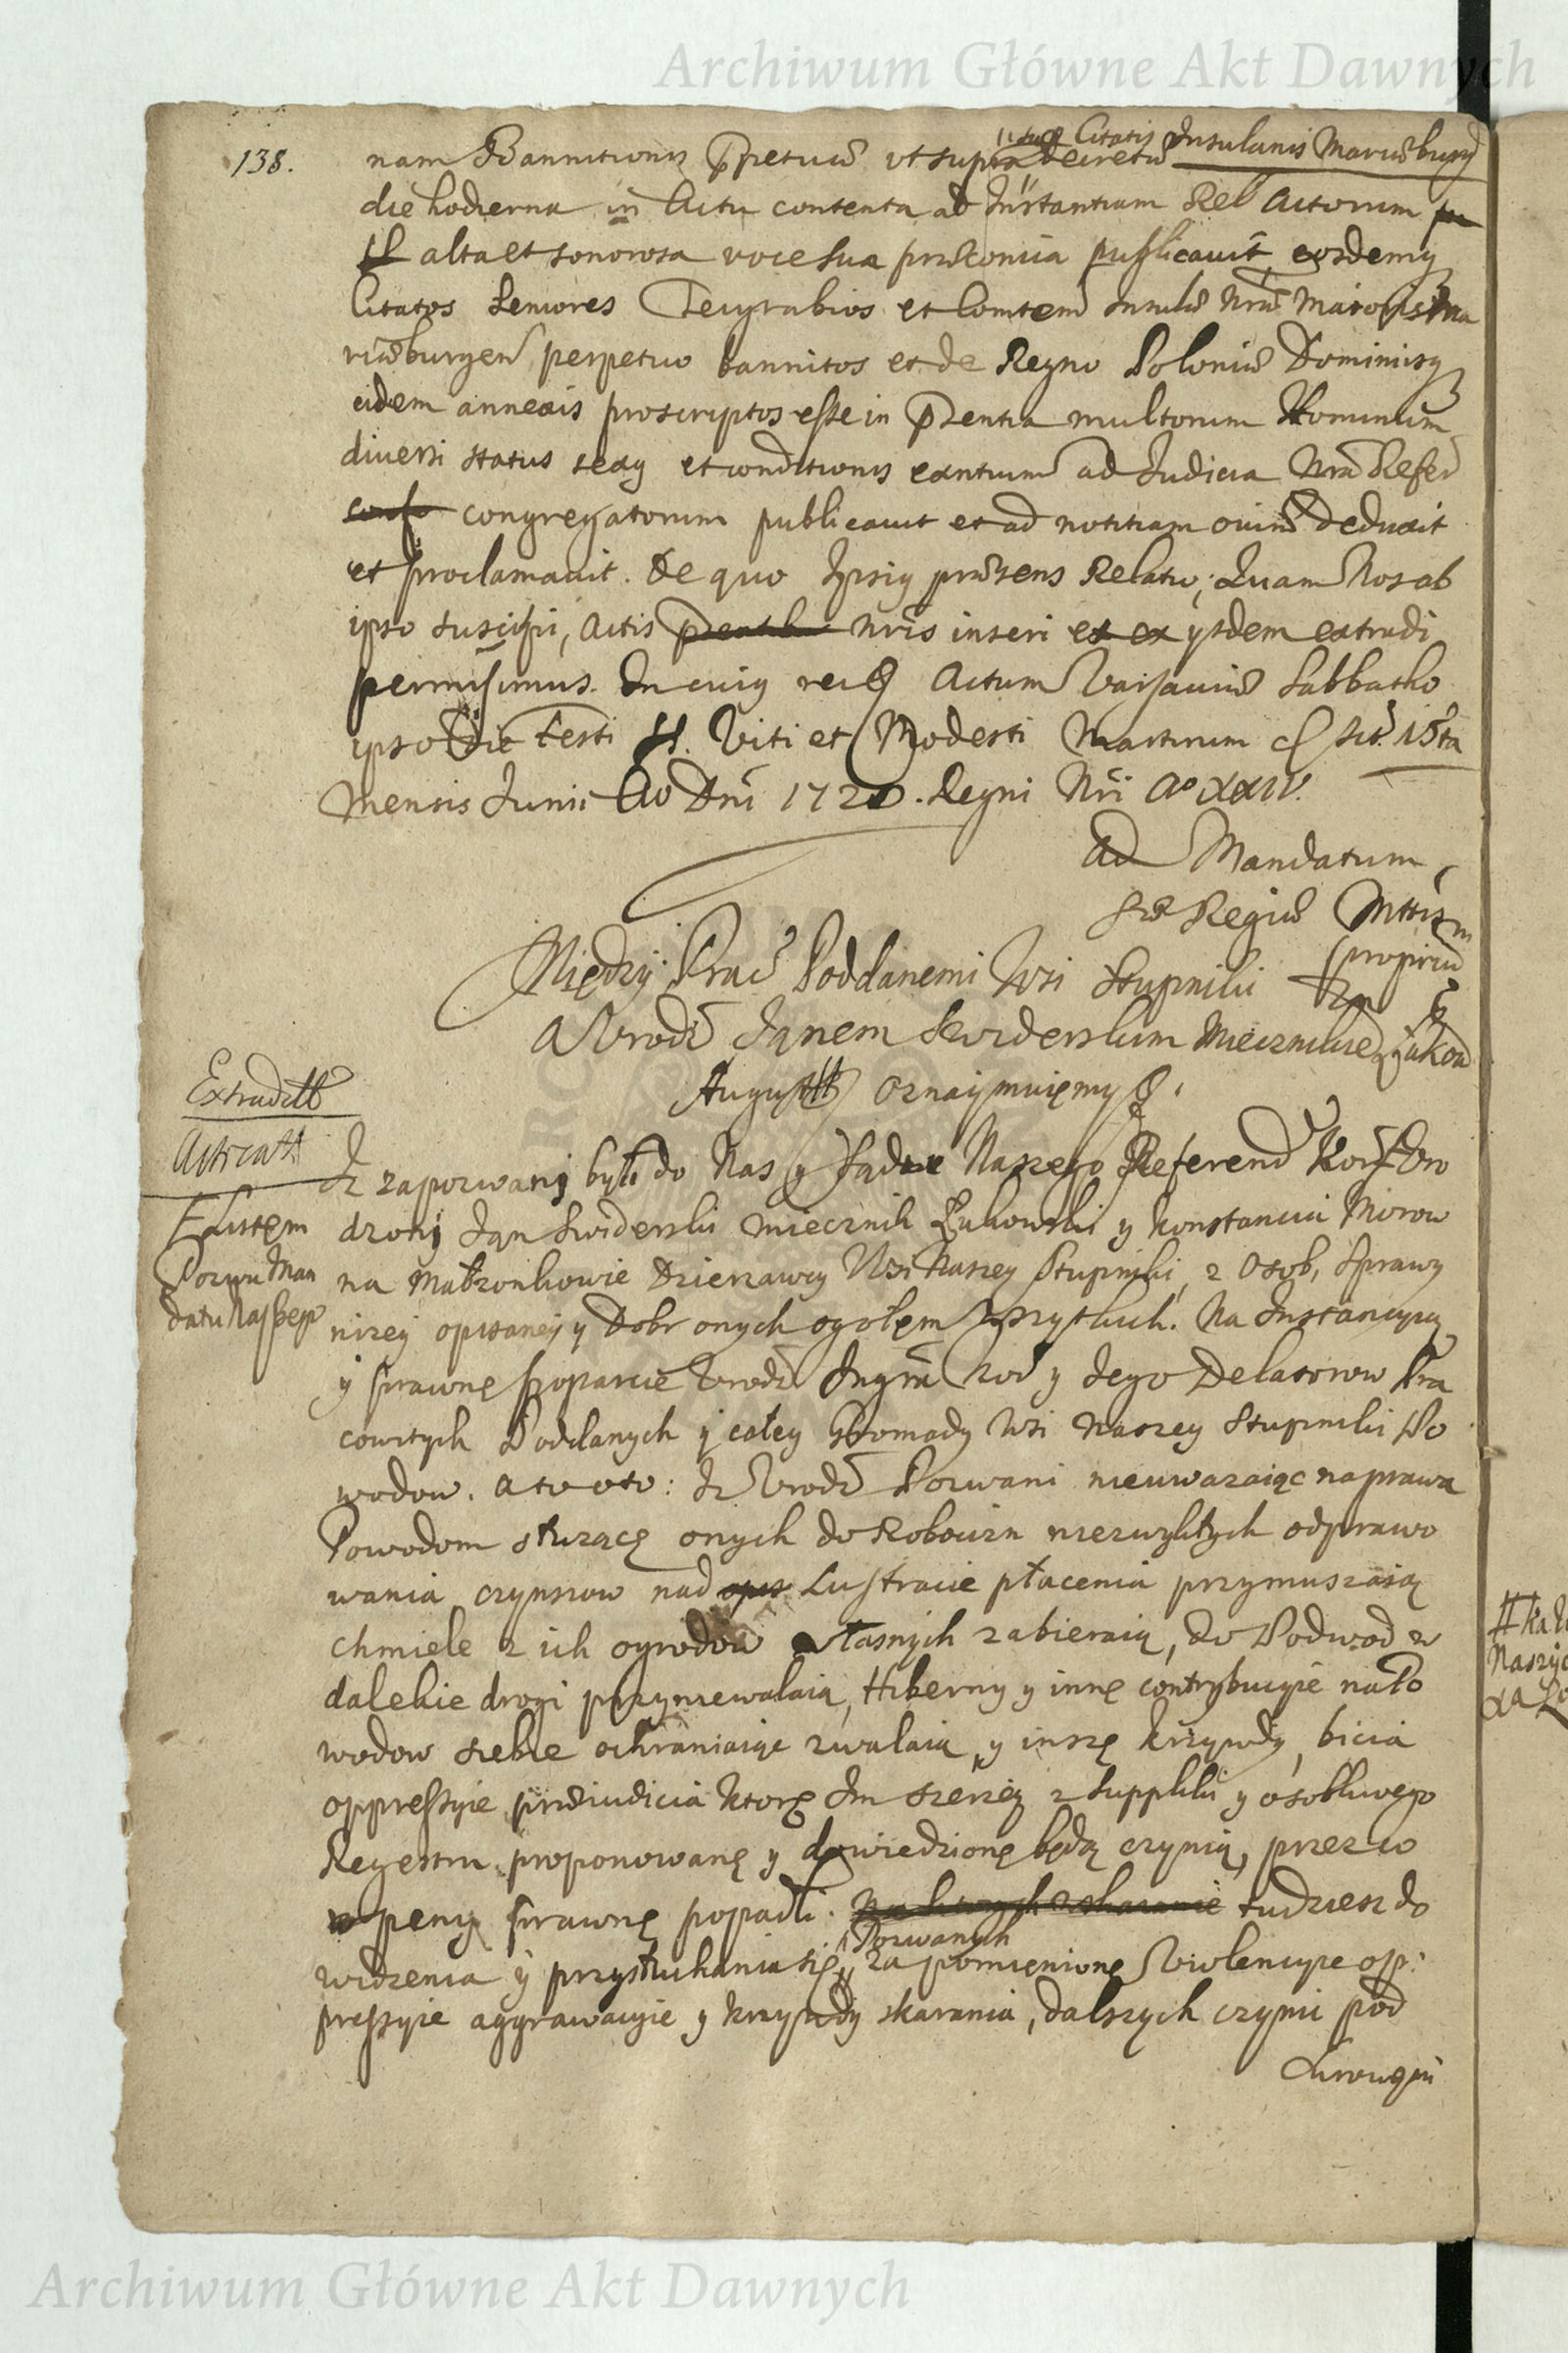 Archiwum Główne Akt Dawnych
138.
nam Bannitionis ppetuæ ut supra Decretu Citatis Insulanis Mariæburg
die hodierna in Actu contenta ad Instantiam Rel Actorum
alta et sonorosa voce sua præconia publicavit, eosdemq
Citatos Seniores Teygrabios et Comtem Insulæ Nræ Maioris Ma
riæburgen perpetuo bannitos et de Regno Poloniæ Dominiisq
eidem annexis proscriptos esse in psentia multorum Hominum
diversi status sexq et conditionis exntium ad Judicia Nra Refer
congregatorum publicavit et ad notitiam oium deduxit
et proclamavit. De quo Ipsiq præsens Relatio, Quam Nos ab
ipso suscipi, Actis nris inseri et ex ysdem extradi
permisimus. In cuiq rei Actum Varsaviæ Sabbatho
ipso Die Festi SS. Viti et Modesti Martirum 15ta
Mensis Junii Ao Dni 1720. Regni Nri Ao XXIV.
Ad Mandatum
Sræ Regiæ Mttis
proprium
Między Prac Poddanemi Wsi Stupnicki
A Urodz Janem Swiderskim Miecznikiem Łukow
August II oznaymuięmy
Extradittt
Actreatt
Iż zapozwanj byli do Nas y Sądu Naszego Referend Kor Uro
dzonj Jan Swiderski Miecznik Łukowski y Konstancia Mirow
na Małżonkowie Dzierzawcy Wsi Naszey Stupnicki, z Osob, Sprawy
niżey opisaney y Dobr onych ogołem wszytkich. Na Instancyą
y prawnę poparcie Urodz Instig Kor y Jego Delatorow Pra
cowitych Poddanych y całey Gromady Wsi Naszey Stupnicki Po
wodow. A to o to: Iż Urodz Pozwani nieuwazaiąc na prawa
Powodom słuzącę onych do Robocizn niezwykłych odprawo
wania czynszow nad opis Lustracie płacenia przymuszaią
chmiele z ich ogrodow własnych zabieraią, do Podwod w
dalekie drogi przyniewalaią, Hiberny y innę contrybucyie na Po
wodow siebie ochraniaiąc zwalaią, y inszę krzywdy, bicia
oppressyie præiudicia ktorę Im szerzey z Suppliki y osobliwego
Regestru proponowanę y dowiedzionę będą czynią, przez co
w peny prawnę popadli. tudziesz do
widzenia y przysłuchania się Pozwanych za pomienionę Violencyie op:
pressyie aggrawacyie y krzywdy skarania, dalszych czynić pod
Srougiemi
Z Listem
Pozwu Man
datu Naszego
Naszyc
Archiwum Główne Akt Dawnych